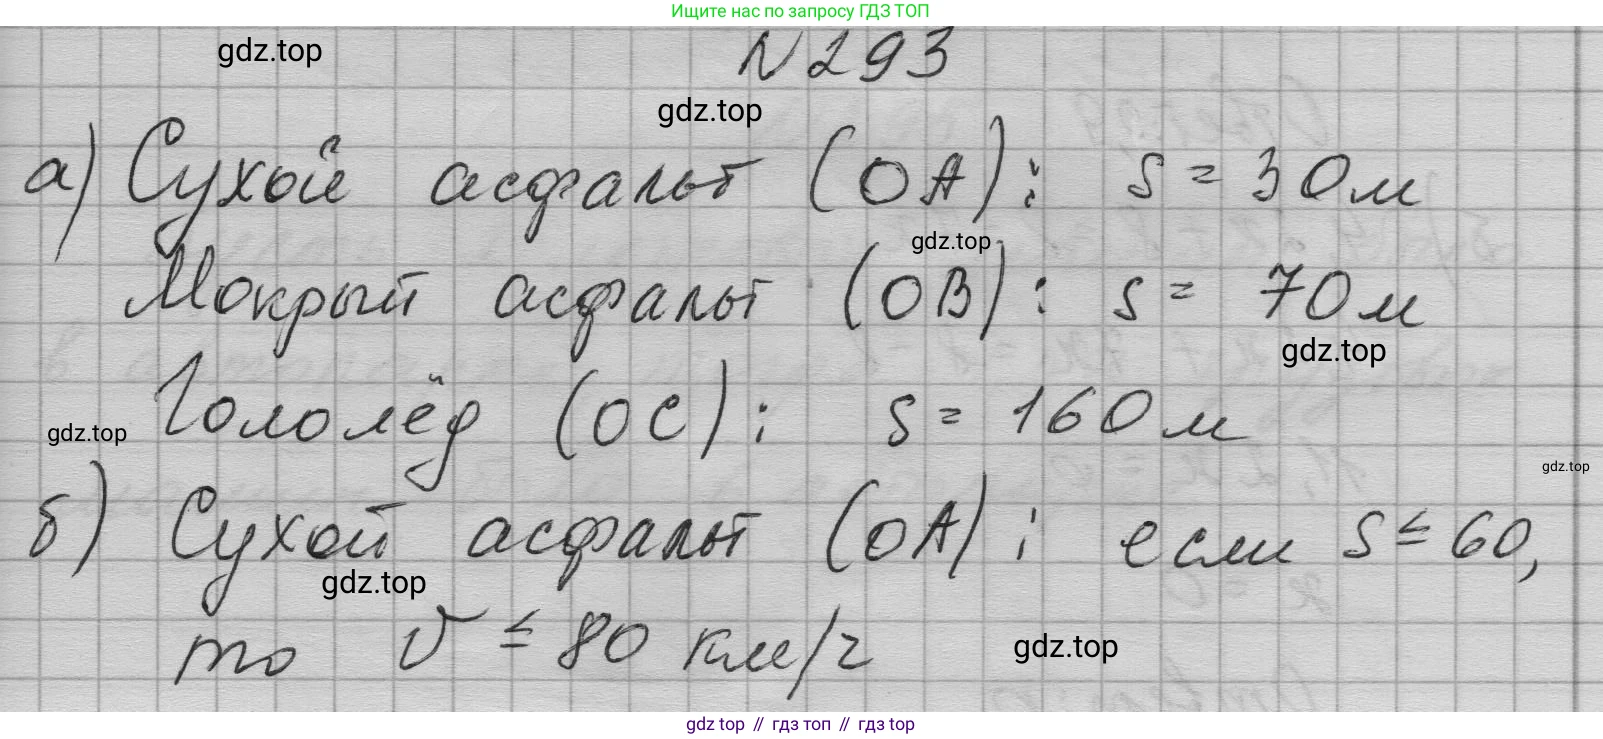 Ищите нас по запросу ГДЗ ТОП
gdz.top
N 293
gdz.top
а) Сухой асфальт (ОА): s = 30м
gdz.top
Мокрый асфальт (ОВ): s = 70м
gdz.top
Гололёд (ОС): s = 160м
gdz.top
gdz.top
б) Сухой асфальт (ОА): если s ≤ 60,
gdz.top
то v ≤ 80 км/ч
gdz.top
gdz top // гдз топ // гдз top